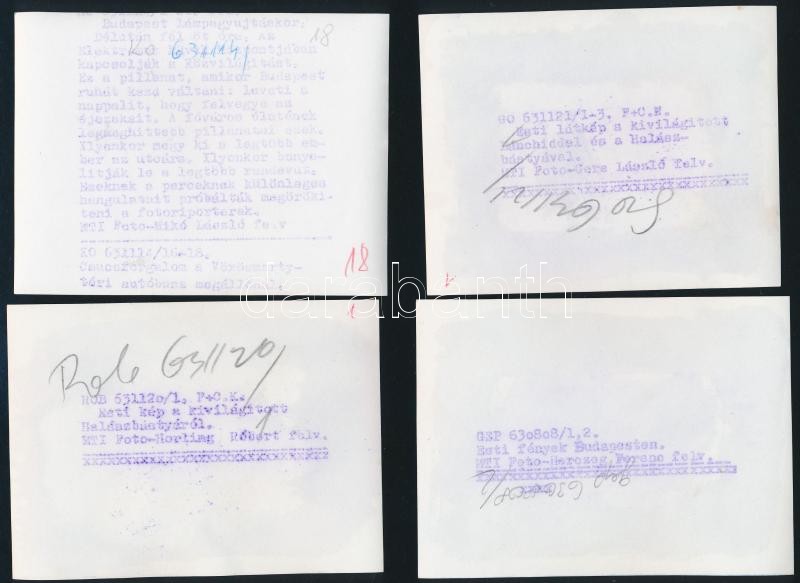 Budapest lámpagyujtáskor.
18
Délután fél öt óra. Az
KO 631114/
kapcsolják a közvilágítást.
Ez a pillanat, amikor Budapest
ruhát kezd váltani: leveti a
nappalit, hogy felvegye az
éjszakait. A főváros életének
legmeghittebb pillanatai ezek.
Ilyenkor megy ki a legtöbb em-
ber az utcára. Ilyenkor bonyo-
lítják le a legtöbb randevút.
Ezeknek a perceknek különleges
hangulatát próbálták megörökí-
teni a fotoriporterek.
MTI Foto-Mikó László felv
KO 631114/16-18.
Csucsforgalom a Vörösmarty-
téri autóbusz megállónál.
18
GO 631121/1-3. F+C.K.
Esti látkép a kivilágított
Lánchiddal és a Halász-
bástyával.
MTI Foto-Gere László felv.
xxxxxxxxxxxxxxxxxxxxxxxxxxxxx
1
darabanth
1
Rob 631120/
1
ROB 631120/1. F+C.K.
Esti kép a kivilágított
Halászbástyáról.
MTI Foto-Horling Róbert felv.
xxxxxxxxxxxxxxxxxxxxxxxxxxxxx
GEP 630808/1,2.
Esti fények Budapesten.
MTI Foto-Herczeg Ferenc felv.
xxxxxxxxxxxxxxxxxxxxxxxxxxxxx